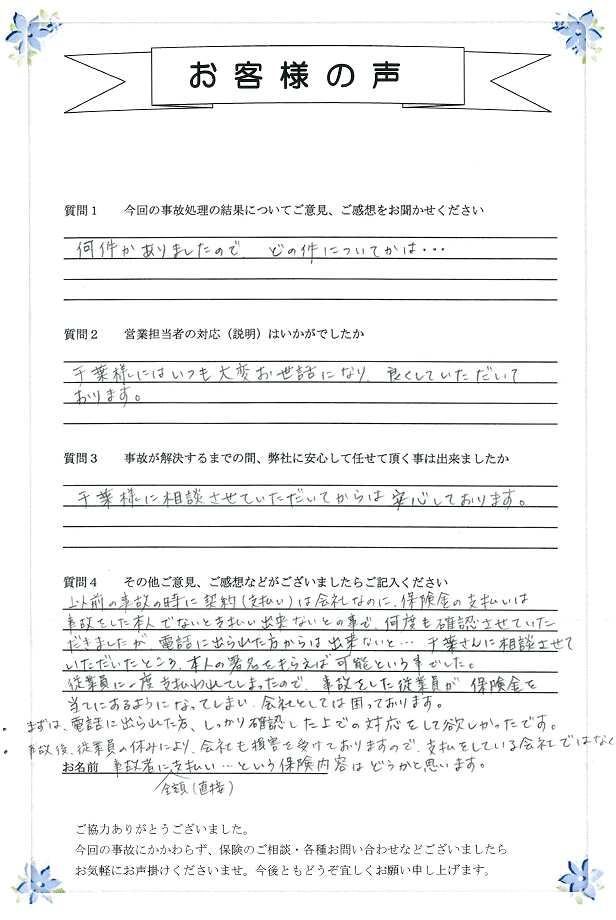 お客様の声
質問１　今回の事故処理の結果についてご意見、ご感想をお聞かせください
何件かありましたので、どの件についてかは・・・
質問２　営業担当者の対応（説明）はいかがでしたか
千葉様にはいつも大変お世話になり、良くしていただいて
おります。
質問３　事故が解決するまでの間、弊社に安心して任せて頂く事は出来ましたか
千葉様に相談させていただいてからは安心しております。
質問４　その他ご意見、ご感想などがございましたらご記入ください
以前の事故の時に契約（支払い）は会社なのに、保険金の支払いは
事故をした本人でないと支払い出来ないとの事で、何度も確認させていた
だきましたが電話に出られた方からは出来ないと…千葉さんに相談させて
いただいたところ、本人の署名をもらえば可能という事でした。
従業員に一度支払われてしまったので、事故をした従業員が保険金を
当てにするようになってしまい、会社としては困っております。
・まずは、電話に出られた方、しっかり確認した上での対応をして欲しかったです。
・事故後、従業員の休みにより、会社も損害を受けておりますので、支払をしている会社ではなく
お名前　事故者に支払い…という保険内容はどうかと思います。
全額（直接）
ご協力ありがとうございました。
今回の事故にかかわらず、保険のご相談・各種お問い合わせなどございましたら
お気軽にお声掛けくださいませ。今後ともどうぞ宜しくお願い申し上げます。